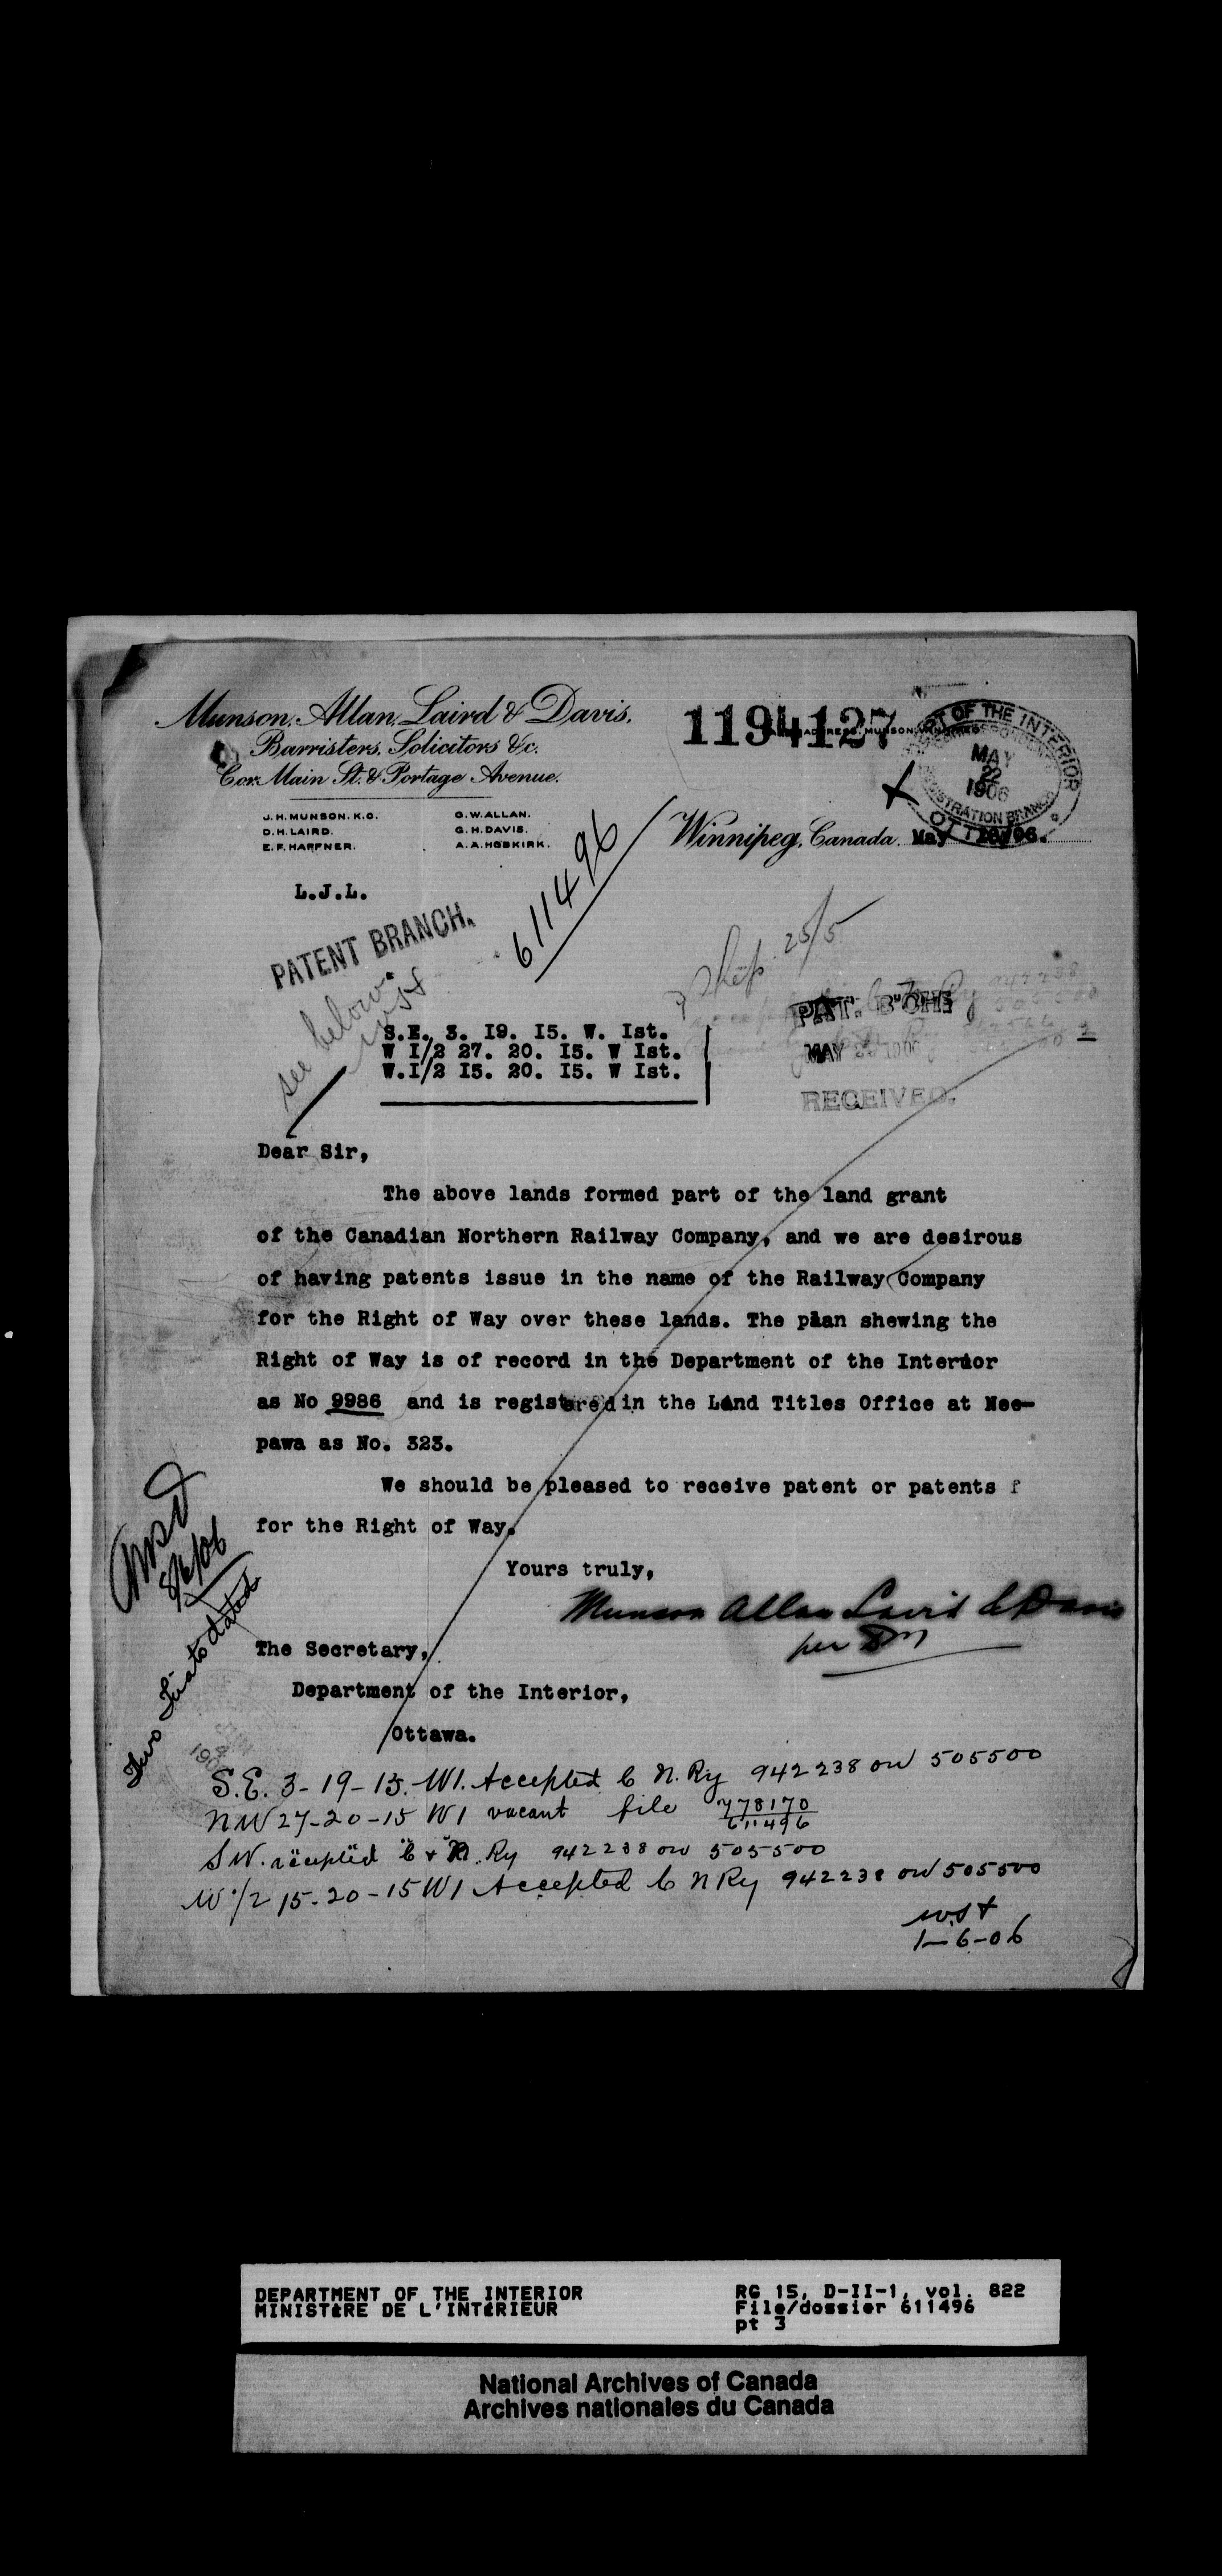 Munson, Allan, Laird & Davis.
Barristers, Solicitors &c.
Cor. Main St. & Portage Avenue.
J. H. MUNSON. K. C.
D. H. LAIRD.
E. F. HAFFNER.
G. W. ALLAN.
G. H. DAVIS.
A. A. HOSKIRK.
1194127
T OF THE INTERIOR
MAY
22
1906
REGISTRATION BRANCH
Winnipeg, Canada. May
L.J.L.
611496
PATENT BRANCH.
see below.
25/5
PAT. B'CH
MAY
RECEIVED.
S.E. 3. I9. I5. W. Ist.
W I/2 27. 20. I5. W Ist.
W.I/2 I5. 20. I5. W Ist.
Dear Sir,
The above lands formed part of the land grant
of the Canadian Northern Railway Company, and we are desirous
of having patents issue in the name of the Railway Company
for the Right of Way over these lands. The plan shewing the
Right of Way is of record in the Department of the Interior
as No 9986 and is registered in the Land Titles Office at Nee-
pawa as No. 323.
We should be pleased to receive patent or patents f
for the Right of Way.
Yours truly,
Munson Allan Laird & Davis
per DM
The Secretary,
Department of the Interior,
Ottawa.
S.E. 3-19-15-W1. Accepted C N. Ry 942238 on 505500
NW 27-20-15 W1 vacant file 778170
611496
SW. accepted C & N. Ry 942238 on 505500
W 1/2 15-20-15 W1 Accepted C N Ry 942238 on 505500
1-6-06
DEPARTMENT OF THE INTERIOR
MINISTÈRE DE L'INTÉRIEUR
RG 15, D-II-1, vol. 822
File/dossier 611496
pt 3
National Archives of Canada
Archives nationales du Canada